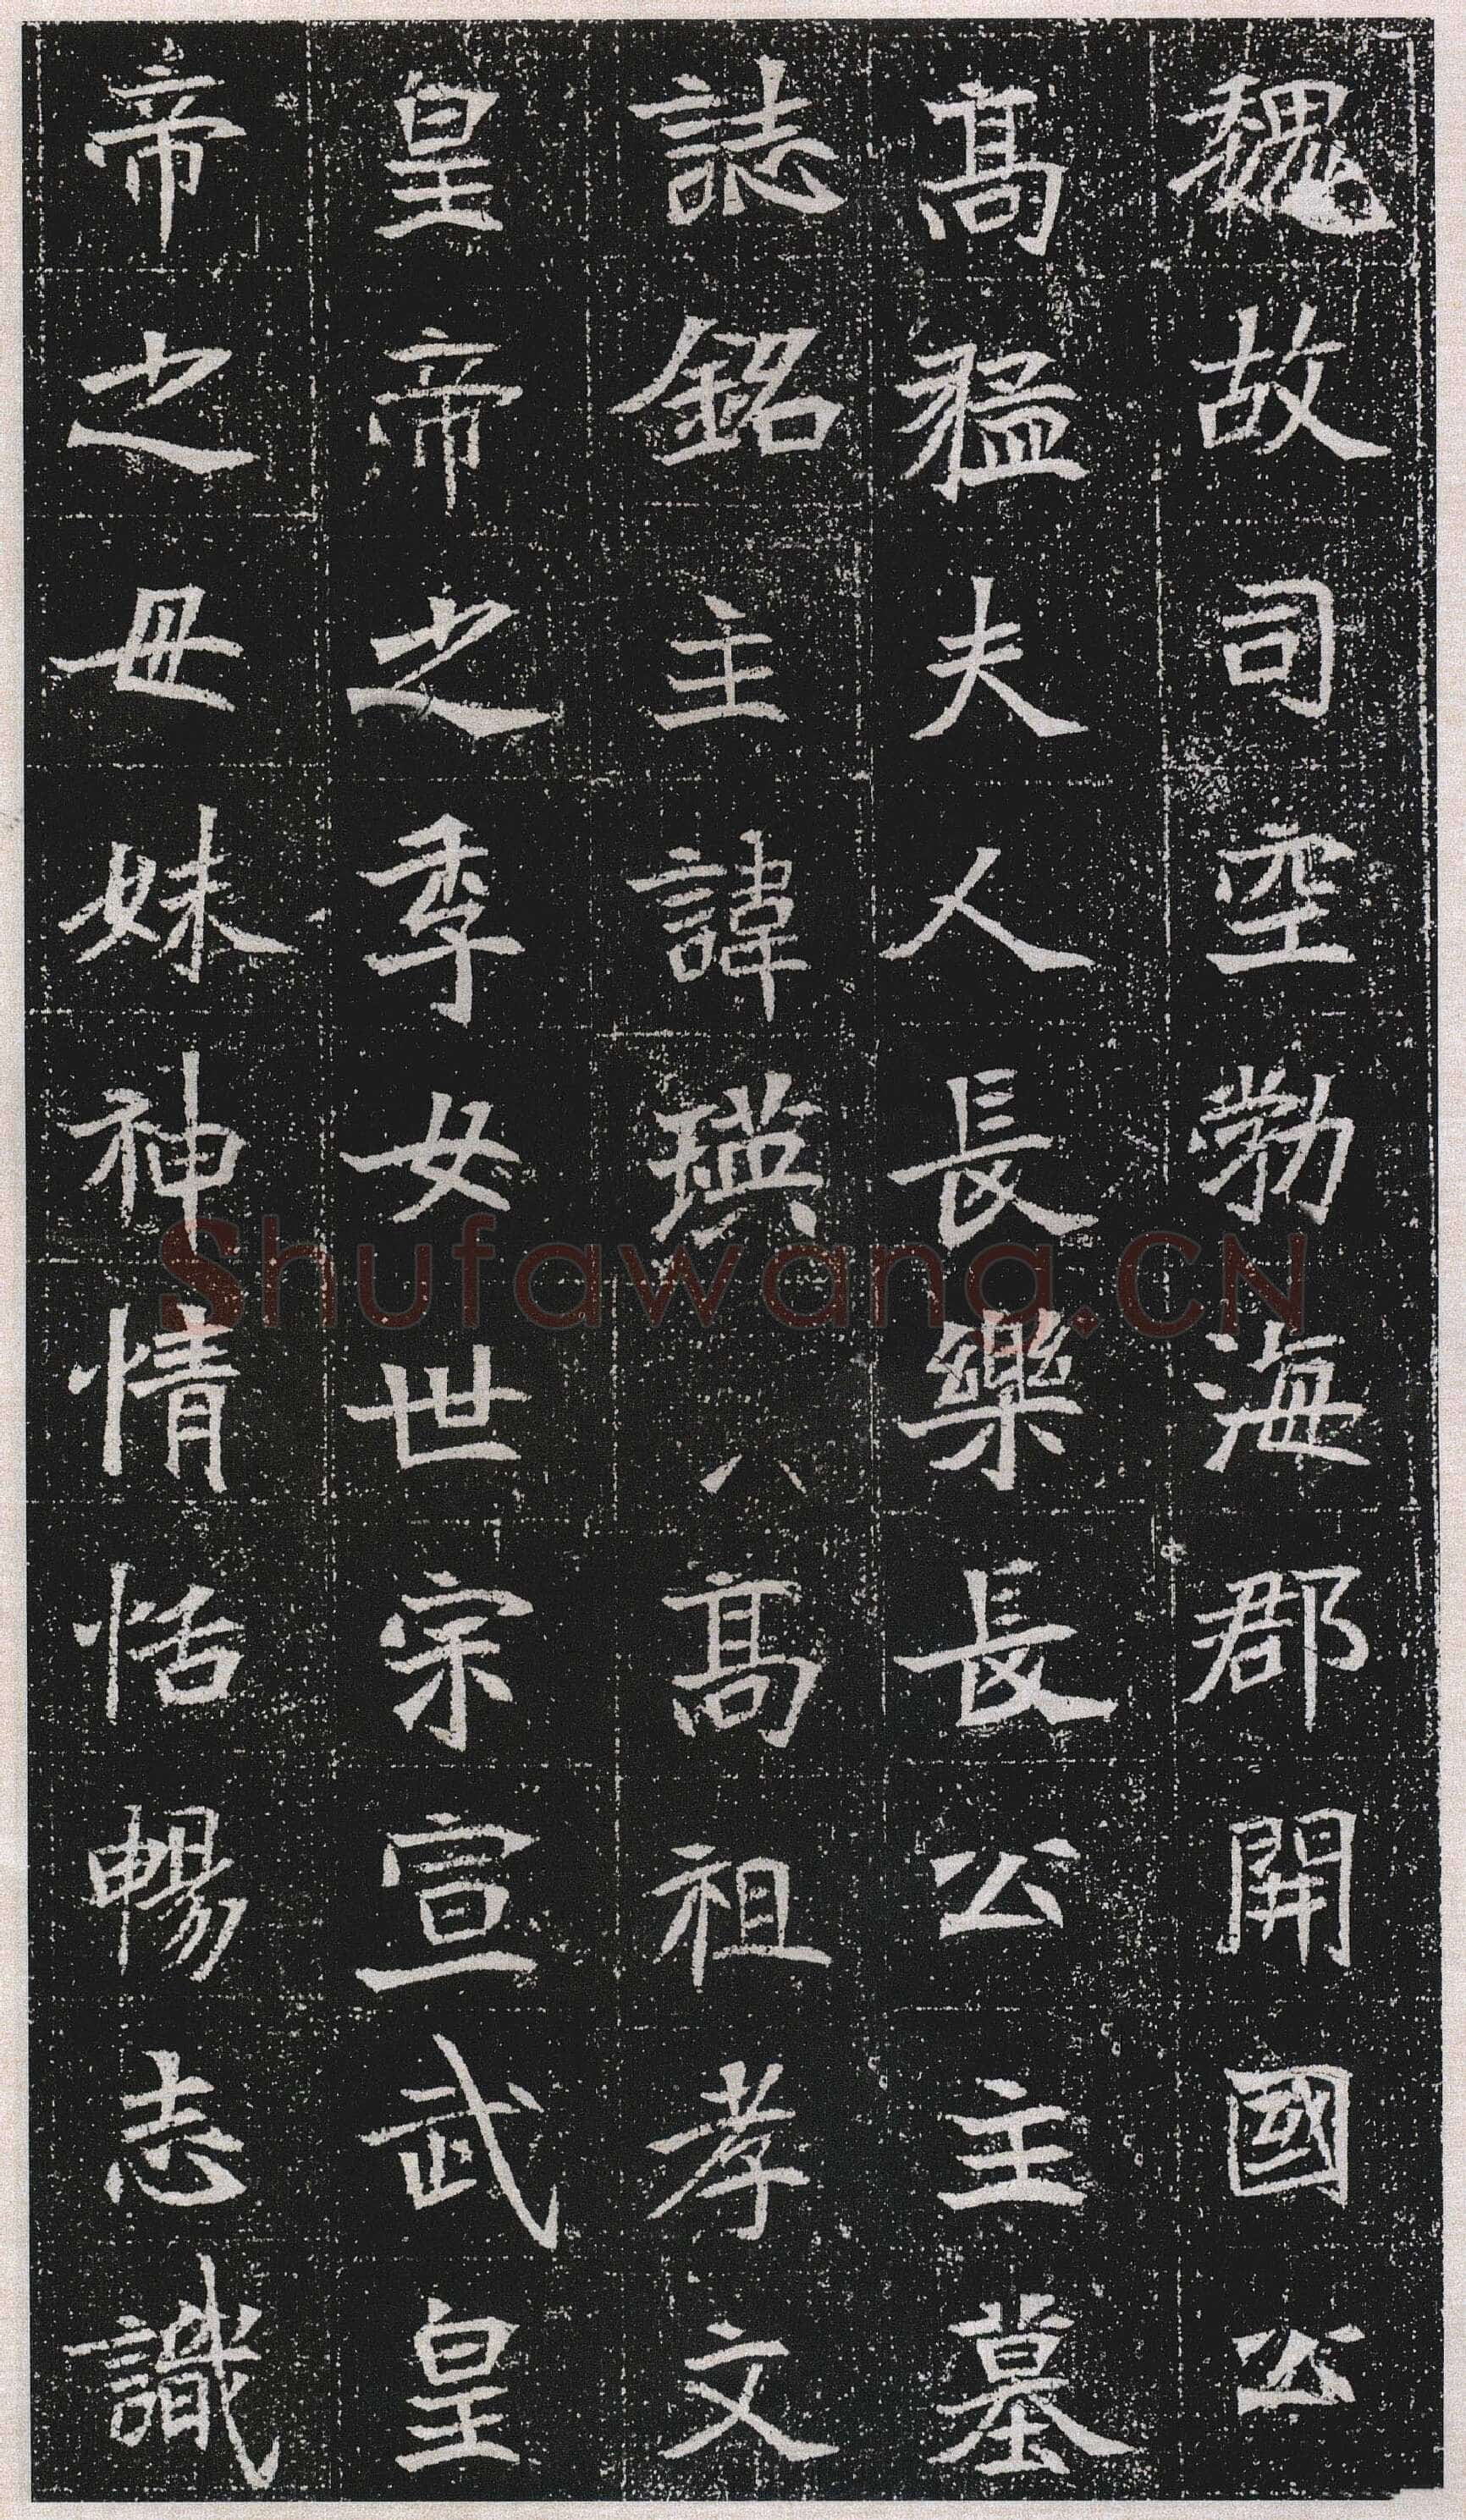 魏故司空勃海郡開國公
高猛夫人長樂長公主墓
誌銘主諱瑛八高祖孝文
皇帝之季女世宗宣武皇
帝之母妹神情恬暢志識
Shufawang.CN